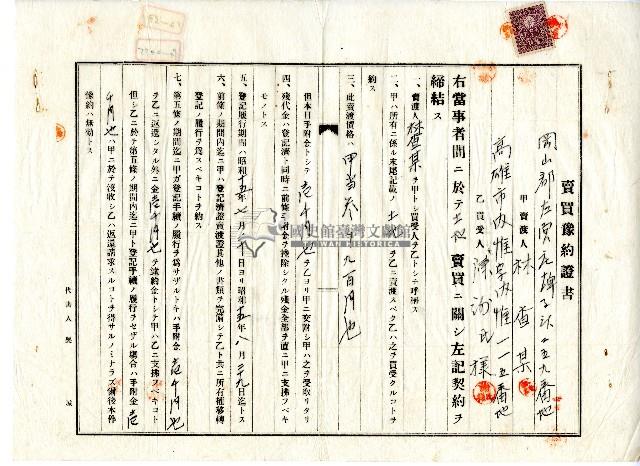 賣買豫約證書
岡山郡左營庄
甲 賣渡人 林查某
高雄市內惟 內惟一一五番地
乙 買受人 陳 氏 樣
右當事者間ニ於テ土地賣買ニ關シ左記契約ヲ
締結ス
一、賣渡人林查某ヲ甲トシ買受人ヲ乙トシテ呼稱ス
二、甲ハ所有ニ係ル末尾記載ノ土地ヲ乙ニ賣渡スベク乙ハ之ヲ買受クルコトヲ
約ス
三、此賣渡價格ハ 甲當參千九百円也
但本日手附金トシテ壱千円也ヲ乙ヨリ甲ニ交附シ甲ハ之ヲ受取リタリ
四、殘代金ハ登記濟ト同時ニ前條ノ手附金ヲ控除シタル殘金全部ヲ直ニ甲ニ支拂フベキ
モノトス
五、登記履行期間ハ昭和十五年七月 日ヨリ昭和十五年八月二十九日迄トス
六、前條ノ期間內迄ニ甲ハ登記濟證賣渡證其他ノ書類ヲ完備シテ乙ト共ニ所有權移轉
登記ノ履行ヲ爲スベキコトヲ約ス
七、第五條ノ期間迄ニ甲ガ登記手續ノ履行ヲ爲サザルトキハ手附金壱千円也
ヲ乙ニ返還シタル外ニ金壱千円也ヲ違約金トシテ甲ハ乙ニ支拂フベキコト
但シ乙ニ於テ第五條ノ期間內迄ニ甲ト登記手續ノ履行ヲセザル場合ハ手附金壱
千円也ハ甲ニ於テ沒收シ乙ハ返還請求スルコトヲ得サルノミナラズ爾後本件
豫約ハ無効トス
代書人契
國史館臺灣文獻館
TAIWAN HISTORICA